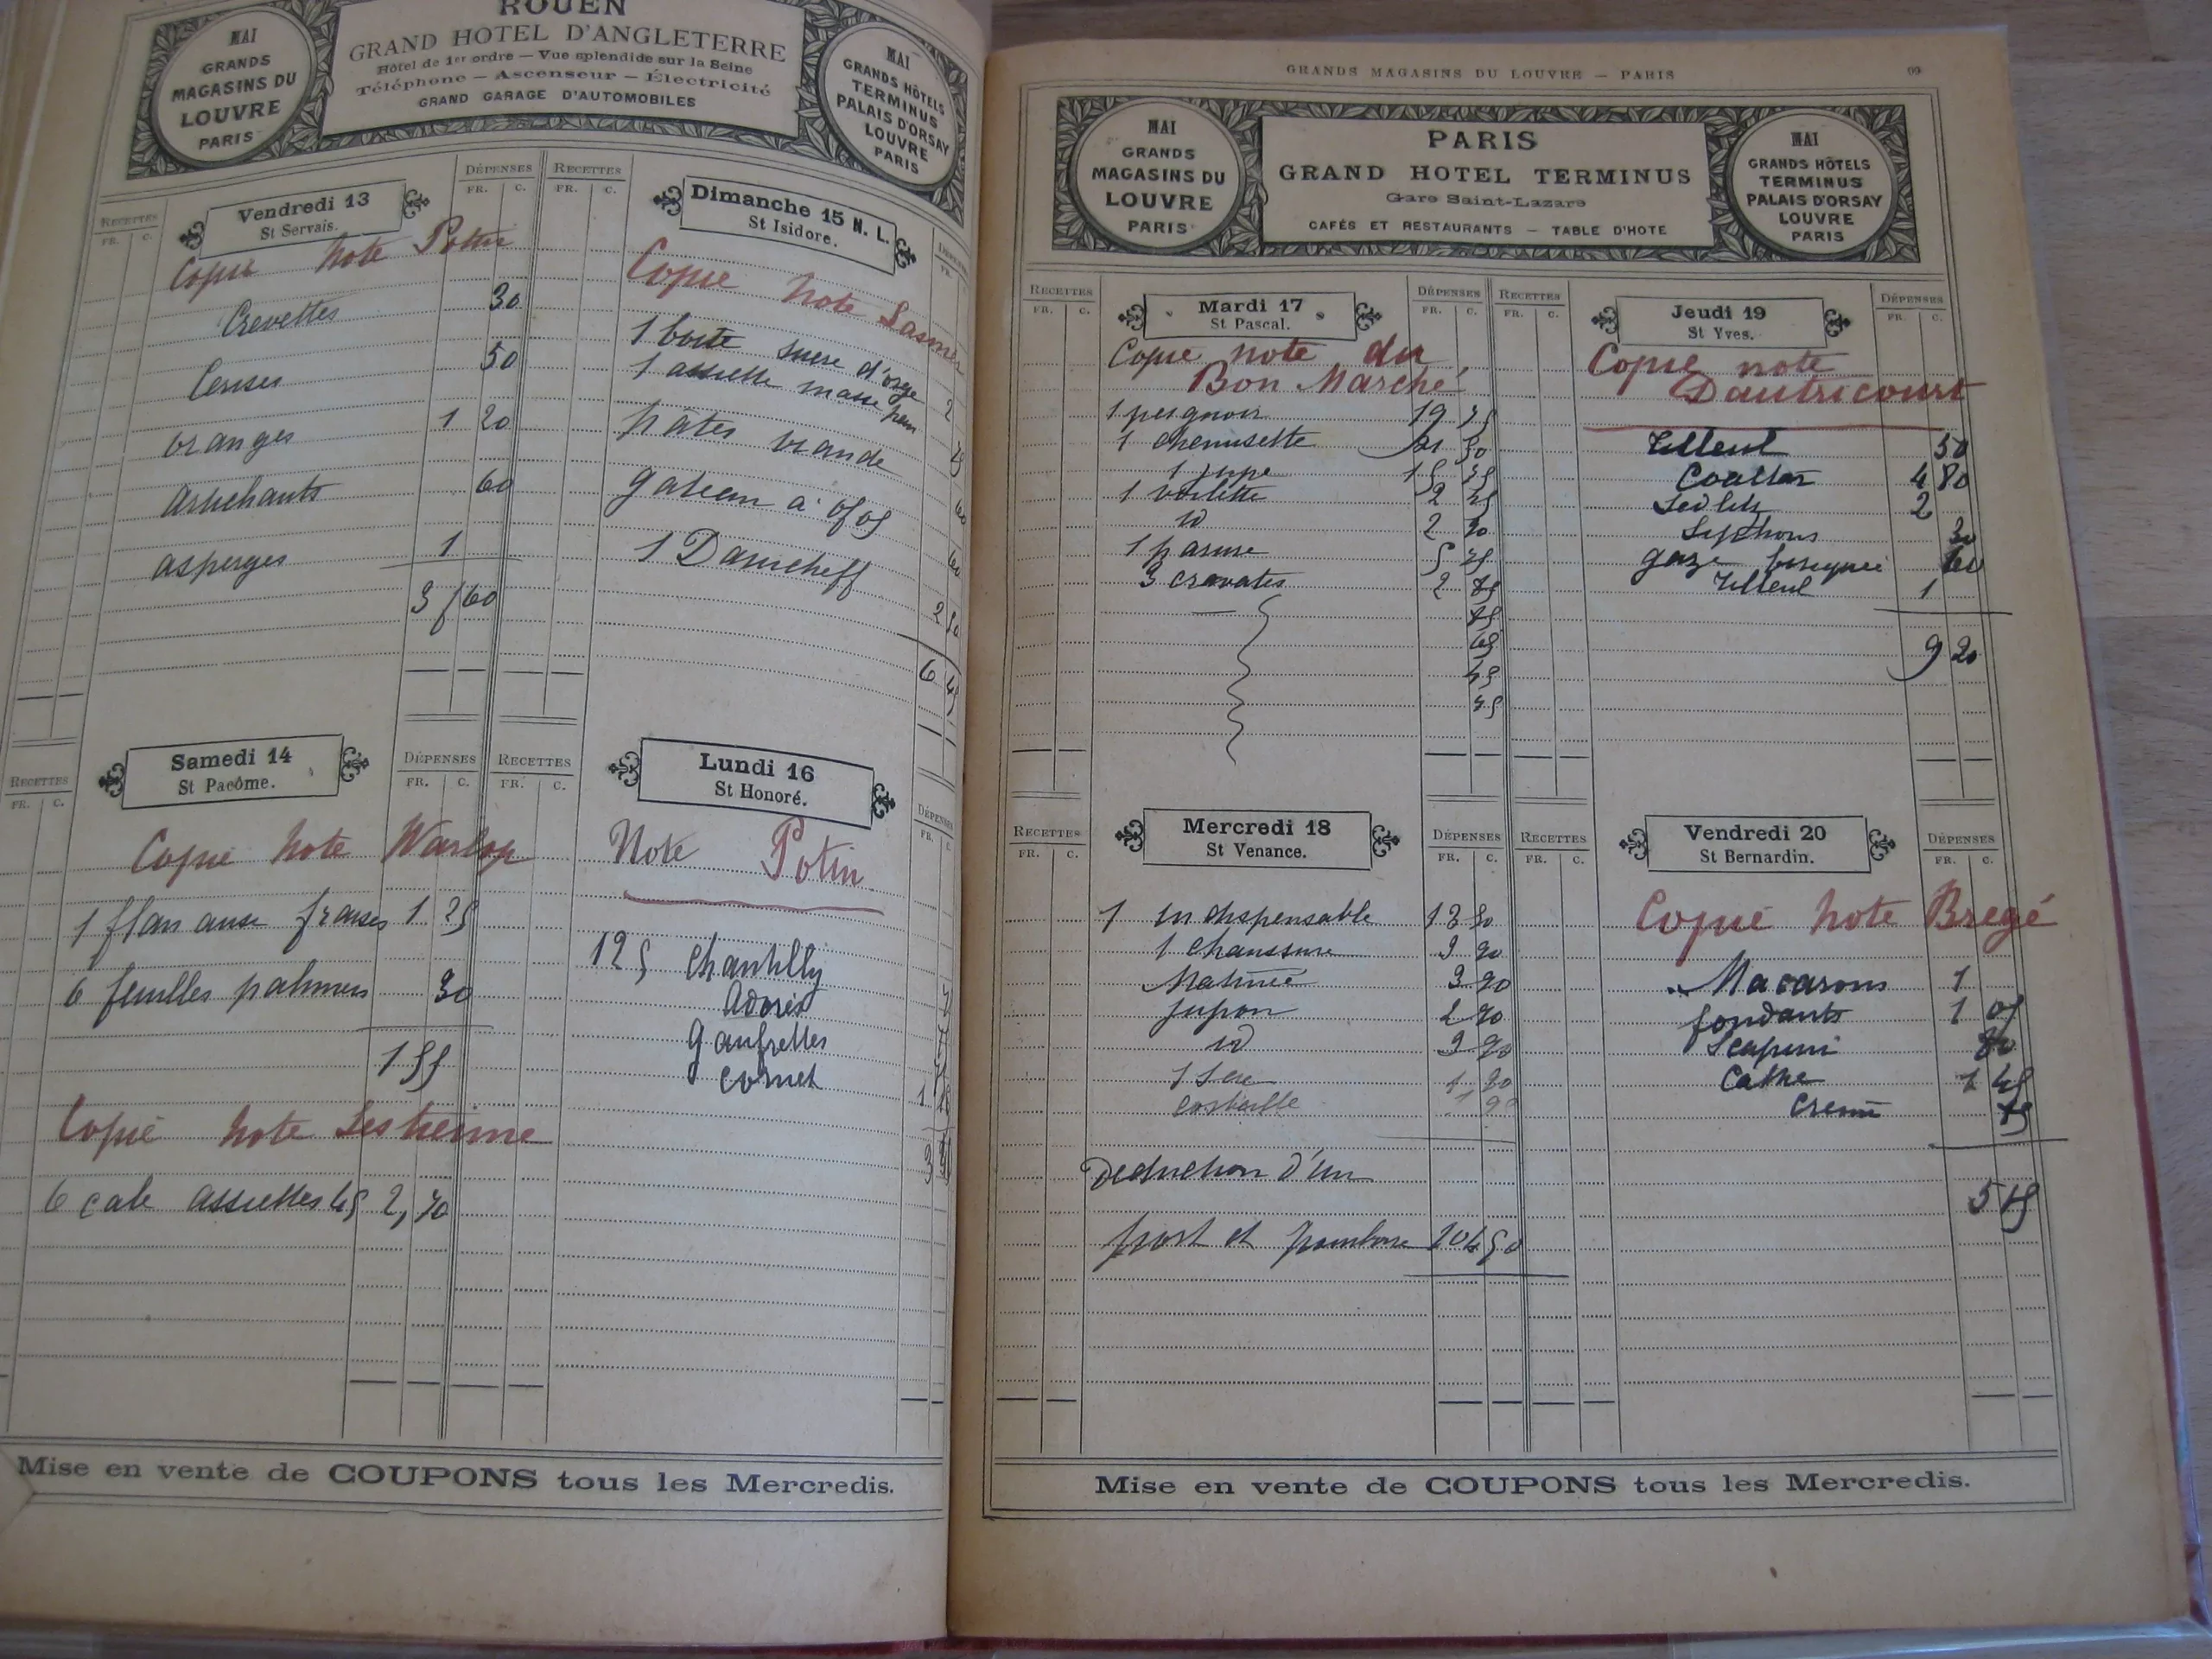 ROUEN
GRAND HOTEL D'ANGLETERRE
Hôtel de 1er ordre — Vue splendide sur la Seine
Téléphone — Ascenseur — Électricité
GRAND GARAGE D'AUTOMOBILES
MAI
GRANDS
MAGASINS DU
LOUVRE
PARIS
MAI
GRANDS HÔTELS
TERMINUS
PALAIS D'ORSAY
LOUVRE
PARIS
RECETTES
FR. C.
Vendredi 13
St Servais.
DÉPENSES
FR. C.
Copie note Potin
Crevettes 30
Cerises 50
oranges 1 20
artichauts 60
asperges 1
3 60
Samedi 14
St Pacôme.
RECETTES
FR. C.
DÉPENSES
FR. C.
Copie note Warlop
1 flan aux fraises 1 25
6 feuilles palmiers 30
1 55
Copie note Lestienne
6 assiettes 45 2,70
RECETTES
FR. C.
Dimanche 15 N. L.
St Isidore.
Copie note
1 boite sucre d'orge 2
1 assiette masse pain
pâtés viande
gateau à 0f05
1 Danicheff 2 50
6
RECETTES
FR. C.
Lundi 16
St Honoré.
DÉPENSES
FR.
Note Potin
125 Chantilly
adorés
gaufrettes
cornet 1
3
Mise en vente de COUPONS tous les Mercredis.
GRANDS MAGASINS DU LOUVRE — PARIS
MAI
GRANDS
MAGASINS DU
LOUVRE
PARIS
PARIS
GRAND HOTEL TERMINUS
Gare Saint-Lazare
CAFÉS ET RESTAURANTS — TABLE D'HOTE
MAI
GRANDS HÔTELS
TERMINUS
PALAIS D'ORSAY
LOUVRE
PARIS
RECETTES
FR. C.
Mardi 17
St Pascal.
DÉPENSES
FR. C.
Copie note du
Bon Marché
1 peignoir 19 75
1 chemisette 50
1 jupe 15
1 voilette 2
id 2 90
1 parure 5
3 cravates 2
Mercredi 18
St Venance.
RECETTES
FR. C.
DÉPENSES
FR. C.
1 indispensable
1 chaussure 3 90
Matinée 3 90
jupon 2 90
id 3 90
1 90
1 90
Deduction d'un
port et 104 50
RECETTES
FR. C.
Jeudi 19
St Yves.
DÉPENSES
FR. C.
Copie note
Dautricourt
Tilleul 50
Coaltar 4 80
Sedlitz 2
Syphons 30
gaze 60
Tilleul 1
9 20
RECETTES
FR. C.
Vendredi 20
St Bernardin.
DÉPENSES
FR. C.
Copie note Bregé
Macarons 1
fondants 1 05
1 45
creme
5
Mise en vente de COUPONS tous les Mercredis.